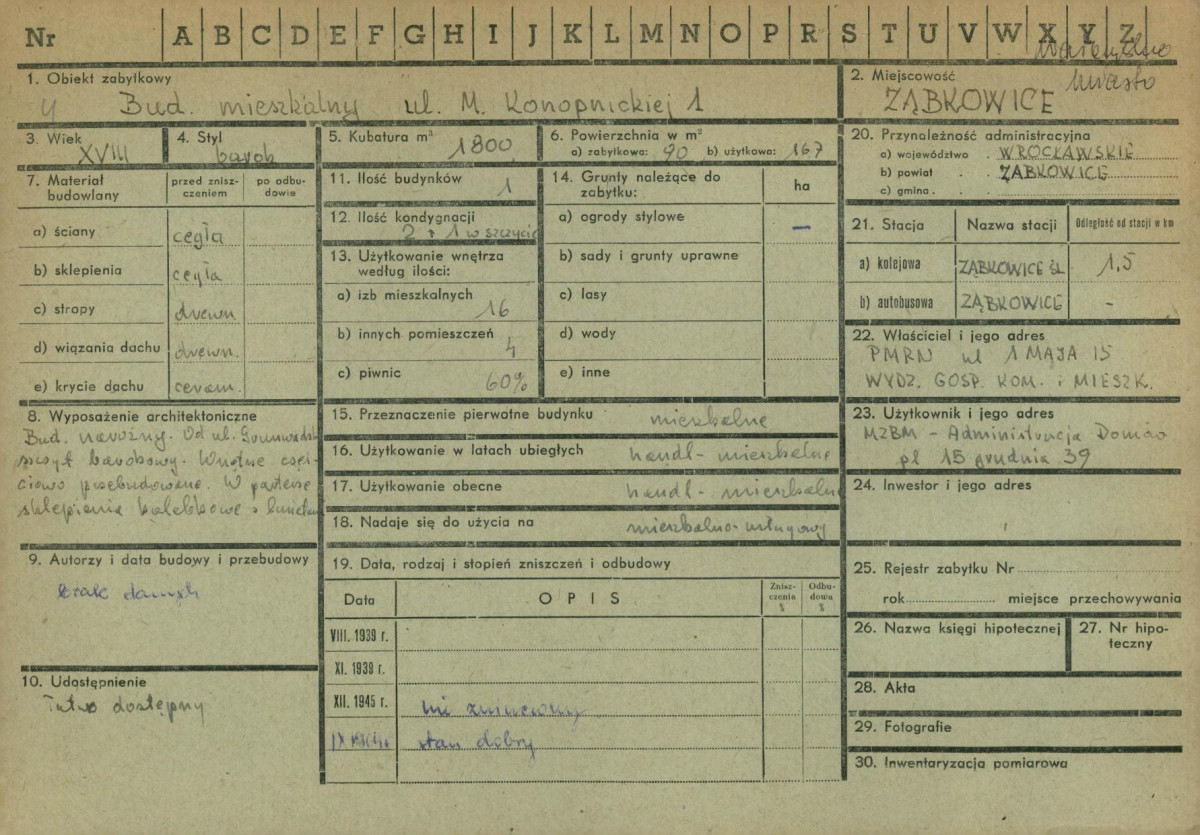 Nr A B C D E F G H I J K L M N O P R S T U V W X Y Z
miasto
1. Obiekt zabytkowy
Bud. mieszkalny ul. M. Konopnickiej 1
2. Miejscowość
ZĄBKOWICE
3. Wiek
XVIII
4. Styl
barok
5. Kubatura m³
1800
6. Powierzchnia w m²
a) zabytkowa: 90 b) użytkowa: 167
7. Materiał budowlany
przed zniszczeniem
po odbudowie
a) ściany cegła
b) sklepienia cegła
c) stropy drewn
d) wiązania dachu drewn.
e) krycie dachu ceram.
8. Wyposażenie architektoniczne
Bud. narożny. Od ul.
szczyt barokowy. Wnętrze częś-
ciowo przebudowane. W parterze
sklepienia kolebkowe z
9. Autorzy i data budowy i przebudowy
brak danych
10. Udostępnienie
łatwo dostępny
11. Ilość budynków
1
12. Ilość kondygnacji
2 + 1 w szczycie
13. Użytkowanie wnętrza
według ilości:
a) izb mieszkalnych
16
b) innych pomieszczeń
4
c) piwnic
60%
14. Grunty należące do
zabytku:
ha
a) ogrody stylowe –
b) sady i grunty uprawne
c) lasy
d) wody
e) inne
15. Przeznaczenie pierwotne budynku mieszkalne
16. Użytkowanie w latach ubiegłych handl- mieszkalne
17. Użytkowanie obecne handl- mieszkalne
18. Nadaje się do użycia na mieszkalno-usługowy
19. Data, rodzaj i stopień zniszczeń i odbudowy
Data
OPIS
Zniszczenia %
Odbudowa %
VIII. 1939 r.
XI. 1939 r.
XII. 1945 r. nie zniszczony
IX stan dobry
20. Przynależność administracyjna
a) województwo . WROCŁAWSKIE
b) powiat . . ZĄBKOWICE
c) gmina .
21. Stacja
Nazwa stacji
Odległość od stacji w km
a) kolejowa ZĄBKOWICE ŚL 1,5
b) autobusowa ZĄBKOWICE -
22. Właściciel i jego adres
PMRN ul 1 MAJA 15
WYDZ. GOSP. KOM. i MIESZK.
23. Użytkownik i jego adres
MZBM - Administracja Domów
pl 15 grudnia 39
24. Inwestor i jego adres
25. Rejestr zabytku Nr
rok miejsce przechowywania
26. Nazwa księgi hipotecznej
27. Nr hipo-
teczny
28. Akta
29. Fotografie
30. Inwentaryzacja pomiarowa